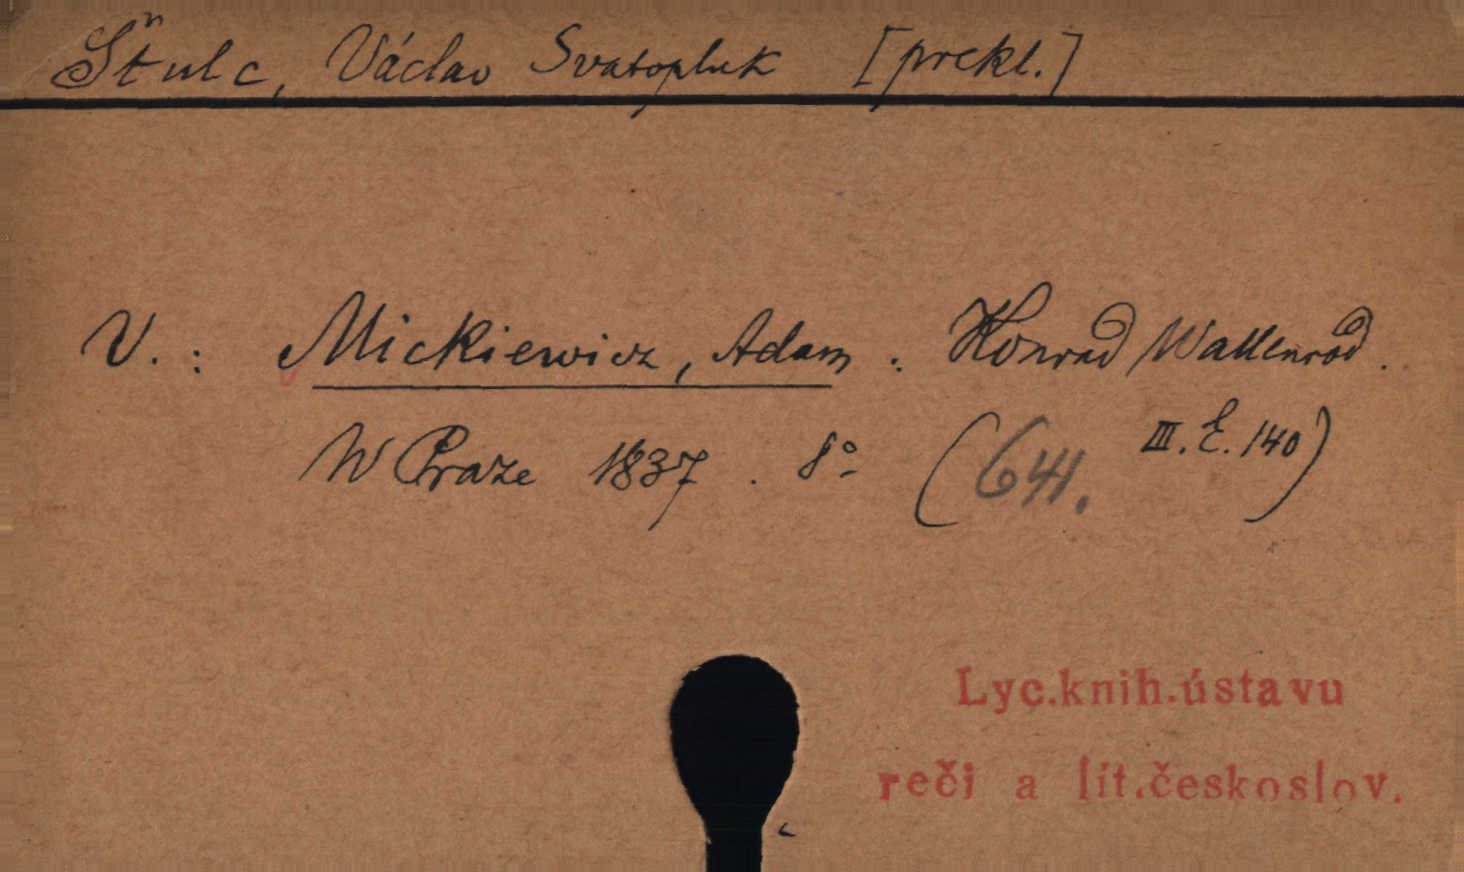 Štulc, Václav Svatopluk [prekl.]
V. : Mickiewicz, Adam : Konrad Wallenrod.
W Praze 1837. 8° (641. III. E. 140)
Lyc.knih.ústavu
reči a lit.českoslov.